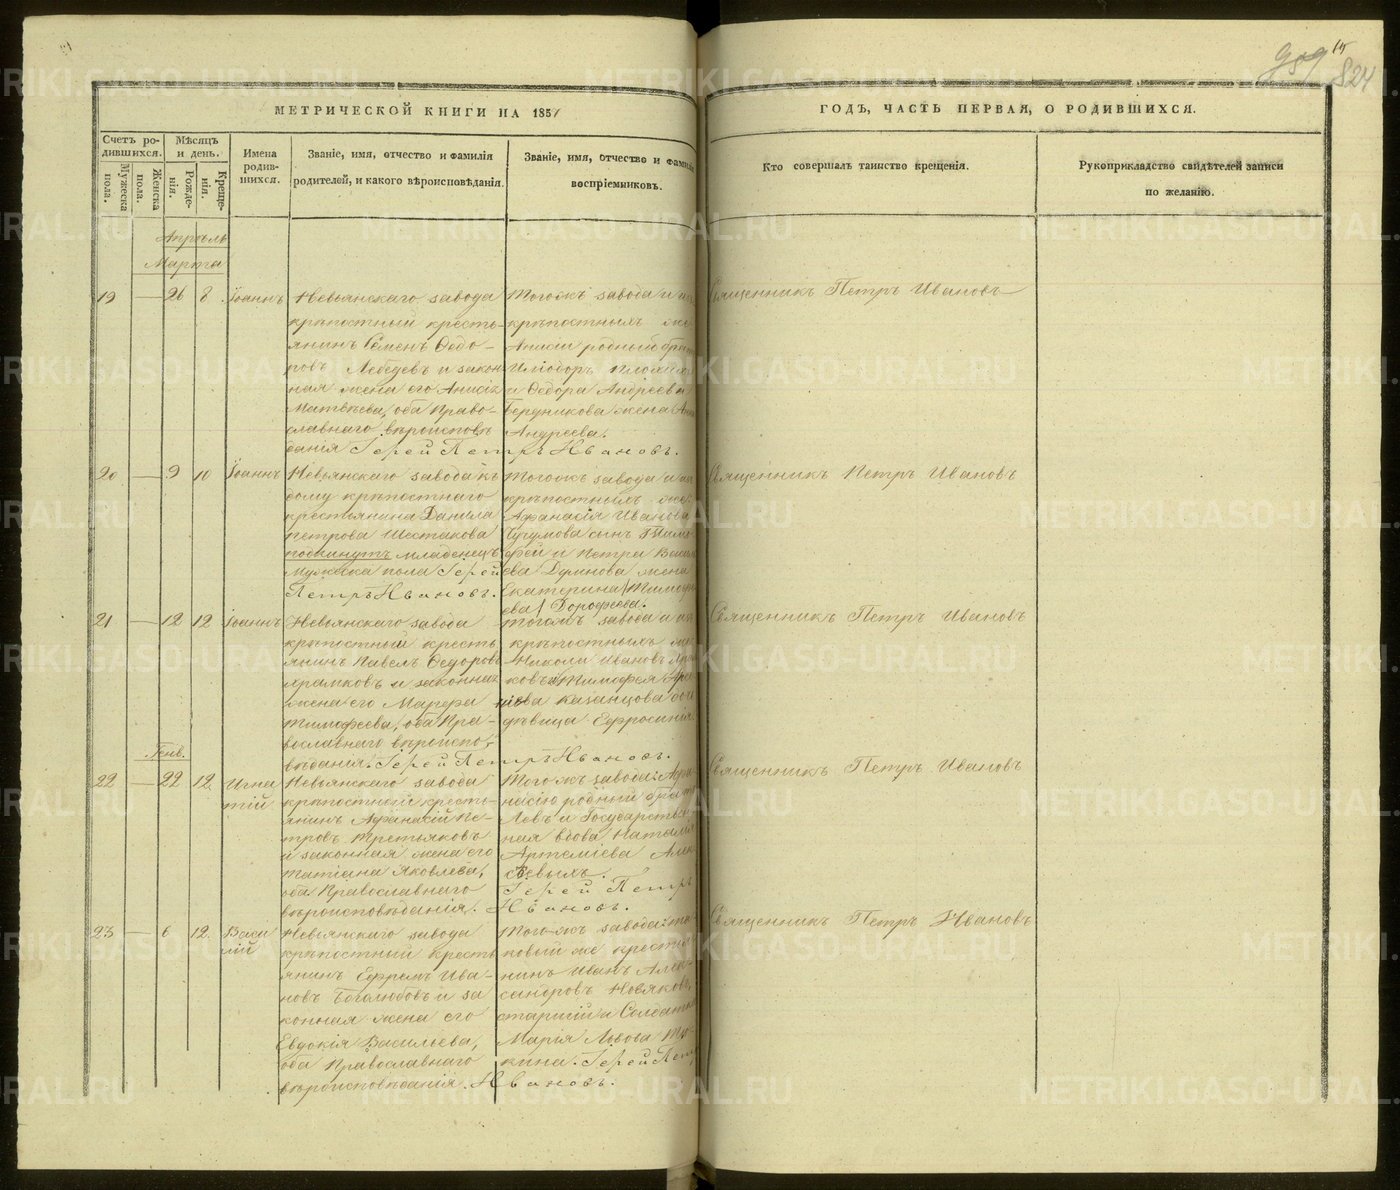 15
959 824
МЕТРИЧЕСКОЙ КНИГИ НА 1851
ГОДЪ, ЧАСТЬ ПЕРВАЯ, О РОДИВШИХСЯ.
Счетъ родившихся.
Мужеска пола.
Женска пола.
Мѣсяцъ и день.
Рожденія.
Крещенія.
Имена родившихся.
Званіе, имя, отчество и фамилія
родителей, и какого вѣроисповѣданія.
Званіе, имя, отчество и фамилія
воспріемниковъ.
Кто совершалъ таинство крещенія.
Рукоприкладство свидѣтелей записи
по желанію.
Апрѣль
Марта
19 — 26 8 Іоаннъ
Невьянскаго завода
крѣпостный кресть-
янинъ Семенъ Ѳедо-
ровъ Лебедевъ и закон
ная жена его Анисія
Матвѣева, оба Право-
славнаго вѣроисповѣ
данія Іерей Петръ Ивановъ.
Тогожъ завода и
крѣпостныхъ же
Анисіи родный братъ
Иліодоръ
и Ѳедора Андреева
Бердникова жена Анна
Андреева.
Священникъ Петръ Ивановъ
20 — 9 10 Іоаннъ
Невьянскаго завода къ
дому крѣпостнаго
крестьянина Данила
Петрова Шестакова
подкинутъ младенецъ
Мужеска пола Іерей
Петръ Ивановъ.
Тогожъ завода и
крѣпостныхъ же
Афанасія Иванова
Чучумова сынъ Тимо
фей и Петра Василь
ева Думнова жена
Екатерина Тимофе
ева Дорофеева.
Священникъ Петръ Ивановъ
21 — 12 12 Іоаннъ
Невьянскаго завода
крѣпостный кресть
янинъ Павелъ Ѳедоровъ
и законная
жена его Марфа
Тимофеева, оба Пра-
вославнаго вѣроиспо-
вѣданія. Іерей Петръ Ивановъ.
Тогожъ завода и
крѣпостныхъ же
Николай Ивановъ
ковъ и Тимофея
Казанцова дочь
дѣвица Ефросинія
Священникъ Петръ Ивановъ
22 — 22 12 Игна
тій
Невьянскаго завода
крѣпостный кресть-
янинъ Афанасій Пе-
тровъ Третьяковъ
и законная жена его
Татіана Яковлева,
оба Православнаго
вѣроисповѣданія.
Тогожъ завода: Афа-
насію родный братъ
Левъ и Государствен
ная вдова Наталья
Артеміева Алек
сѣевыхъ.
Іерей Петръ
Ивановъ.
Священникъ Петръ Ивановъ
23 — 6 12 Васи
лій
Невьянскаго завода
крѣпостный кресть
янинъ Ефремъ Ива-
новъ Боголюбовъ и за
конная жена его
Евдокія Васильева,
оба Православнаго
вѣроисповѣданія.
Тогожъ завода: та-
ковый же крестья
нинъ Иванъ Алек-
сандровъ Новяковъ
старшій и Солдатка
Марія Львова Тю-
кина. Іерей Петръ
Ивановъ.
Священникъ Петръ Ивановъ
METRIKI.GASO-URAL.RU